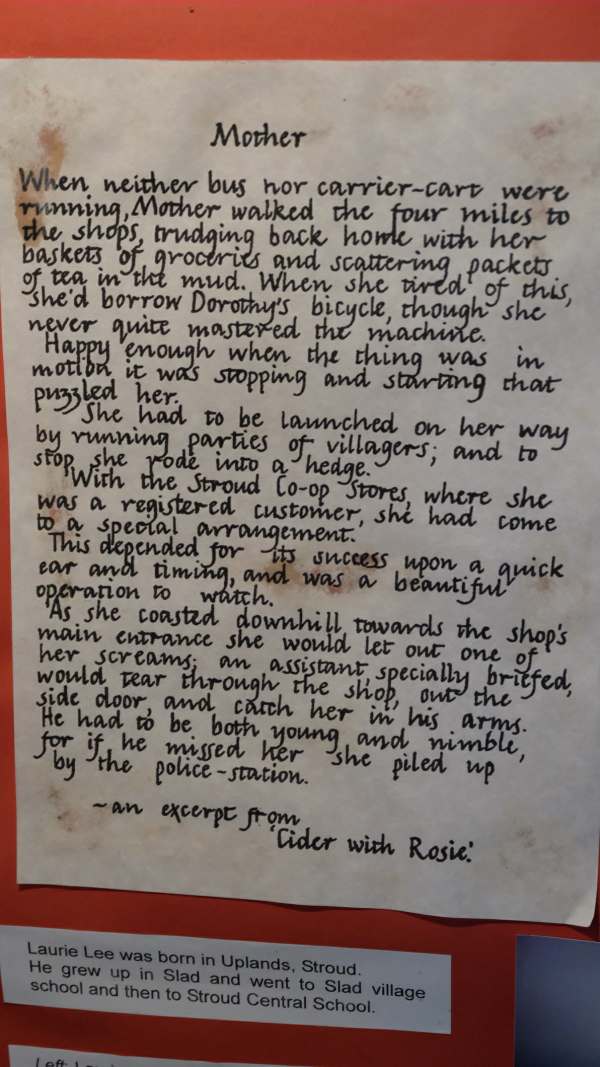 Mother
When neither bus nor carrier-cart were
running, Mother walked the four miles to
the shops, trudging back home with her
baskets of groceries and scattering packets
of tea in the mud. When she tired of this,
she'd borrow Dorothy's bicycle, though she
never quite mastered the machine.
Happy enough when the thing was in
motion it was stopping and starting that
puzzled her.
She had to be launched on her way
by running parties of villagers; and to
stop she rode into a hedge.
With the Stroud Co-op Stores, where she
was a registered customer, she had come
to a special arrangement.
This depended for its success upon a quick
ear and timing, and was a beautiful
operation to watch.
As she coasted downhill towards the shop's
main entrance she would let out one of
her screams; an assistant, specially briefed,
would tear through the shop, out the
side door, and catch her in his arms.
He had to be both young and nimble,
for if he missed her she piled up
by the police-station.
~an excerpt from
'Cider with Rosie'.
Laurie Lee was born in Uplands, Stroud.
He grew up in Slad and went to Slad village
school and then to Stroud Central School.
Left: